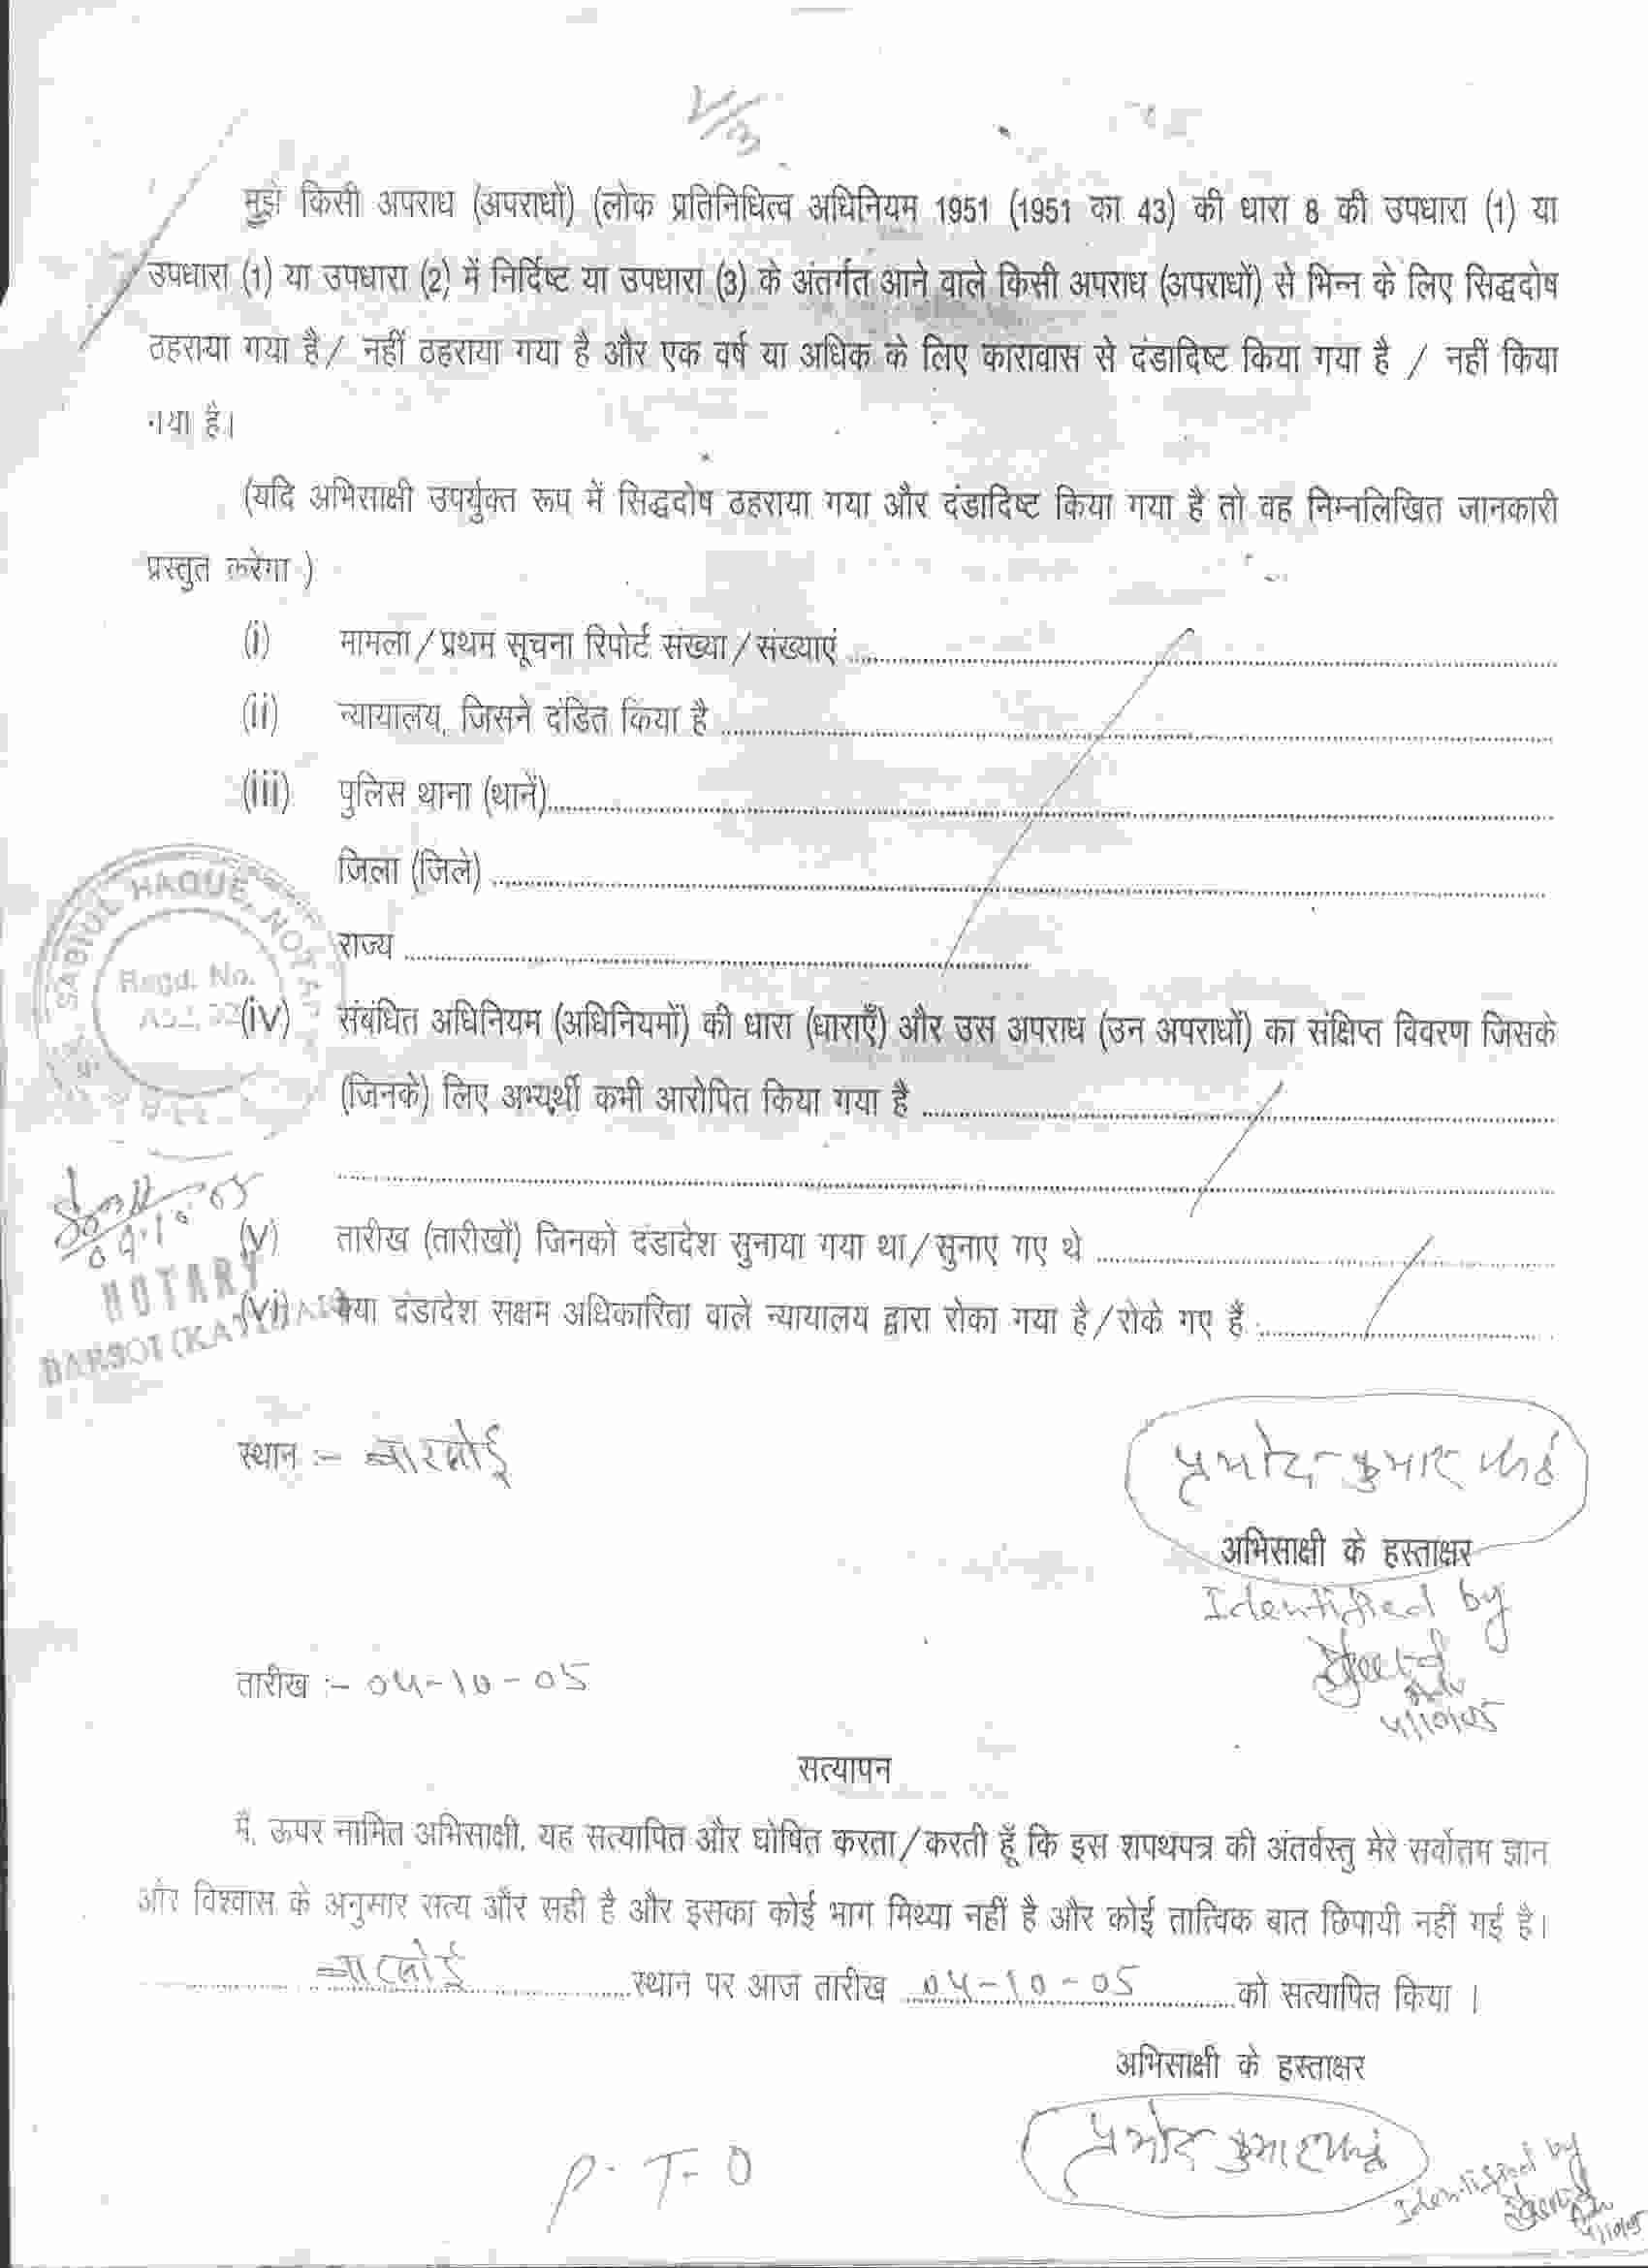 मुझे किसी अपराध (अपराधों) (लोक प्रतिनिधित्व अधिनियम 1951 (1951 का 43) की धारा 8 की उपधारा (1) या
उपधारा (1) या उपधारा (2) में निर्दिष्ट या उपधारा (3) के अंतर्गत आने वाले किसी अपराध (अपराधों) से भिन्न के लिए सिद्धदोष
ठहराया गया है / नहीं ठहराया गया है और एक वर्ष या अधिक के लिए कारावास से दंडादिष्ट किया गया है / नहीं किया
गया है।
(यदि अभिसाक्षी उपर्युक्त रूप में सिद्धदोष ठहराया गया और दंडादिष्ट किया गया है तो वह निम्नलिखित जानकारी
प्रस्तुत करेगा )
(i) मामला / प्रथम सूचना रिपोर्ट संख्या / संख्याएं
(ii) न्यायालय, जिसने दंडित किया है
(iii) पुलिस थाना (थानें)
जिला (जिले)
राज्य
SABIUL HAQUE, NOTARY
Regd. No.
(iv) संबंधित अधिनियम (अधिनियमों) की धारा (धाराएँ) और उस अपराध (उन अपराधों) का संक्षिप्त विवरण जिसके
(जिनके) लिए अभ्यर्थी कभी आरोपित किया गया है
(v) तारीख (तारीखों) जिनको दंडादेश सुनाया गया था / सुनाए गए थे
NOTARY
(vi) क्या दंडादेश सक्षम अधिकारिता वाले न्यायालय द्वारा रोका गया है / रोके गए हैं
BARSOI (KATIHAR)
स्थान :- बारसोई
प्रमोद कुमार
अभिसाक्षी के हस्ताक्षर
Identified by
4/10/05
तारीख :- 04-10-05
सत्यापन
मैं, ऊपर नामित अभिसाक्षी, यह सत्यापित और घोषित करता / करती हूँ कि इस शपथपत्र की अंतर्वस्तु मेरे सर्वोत्तम ज्ञान
और विश्वास के अनुसार सत्य और सही है और इसका कोई भाग मिथ्या नहीं है और कोई तात्विक बात छिपायी नहीं गई है।
बारसोई स्थान पर आज तारीख 04-10-05 को सत्यापित किया ।
अभिसाक्षी के हस्ताक्षर
प्रमोद कुमार
Identified by
4/10/05
P.T.O